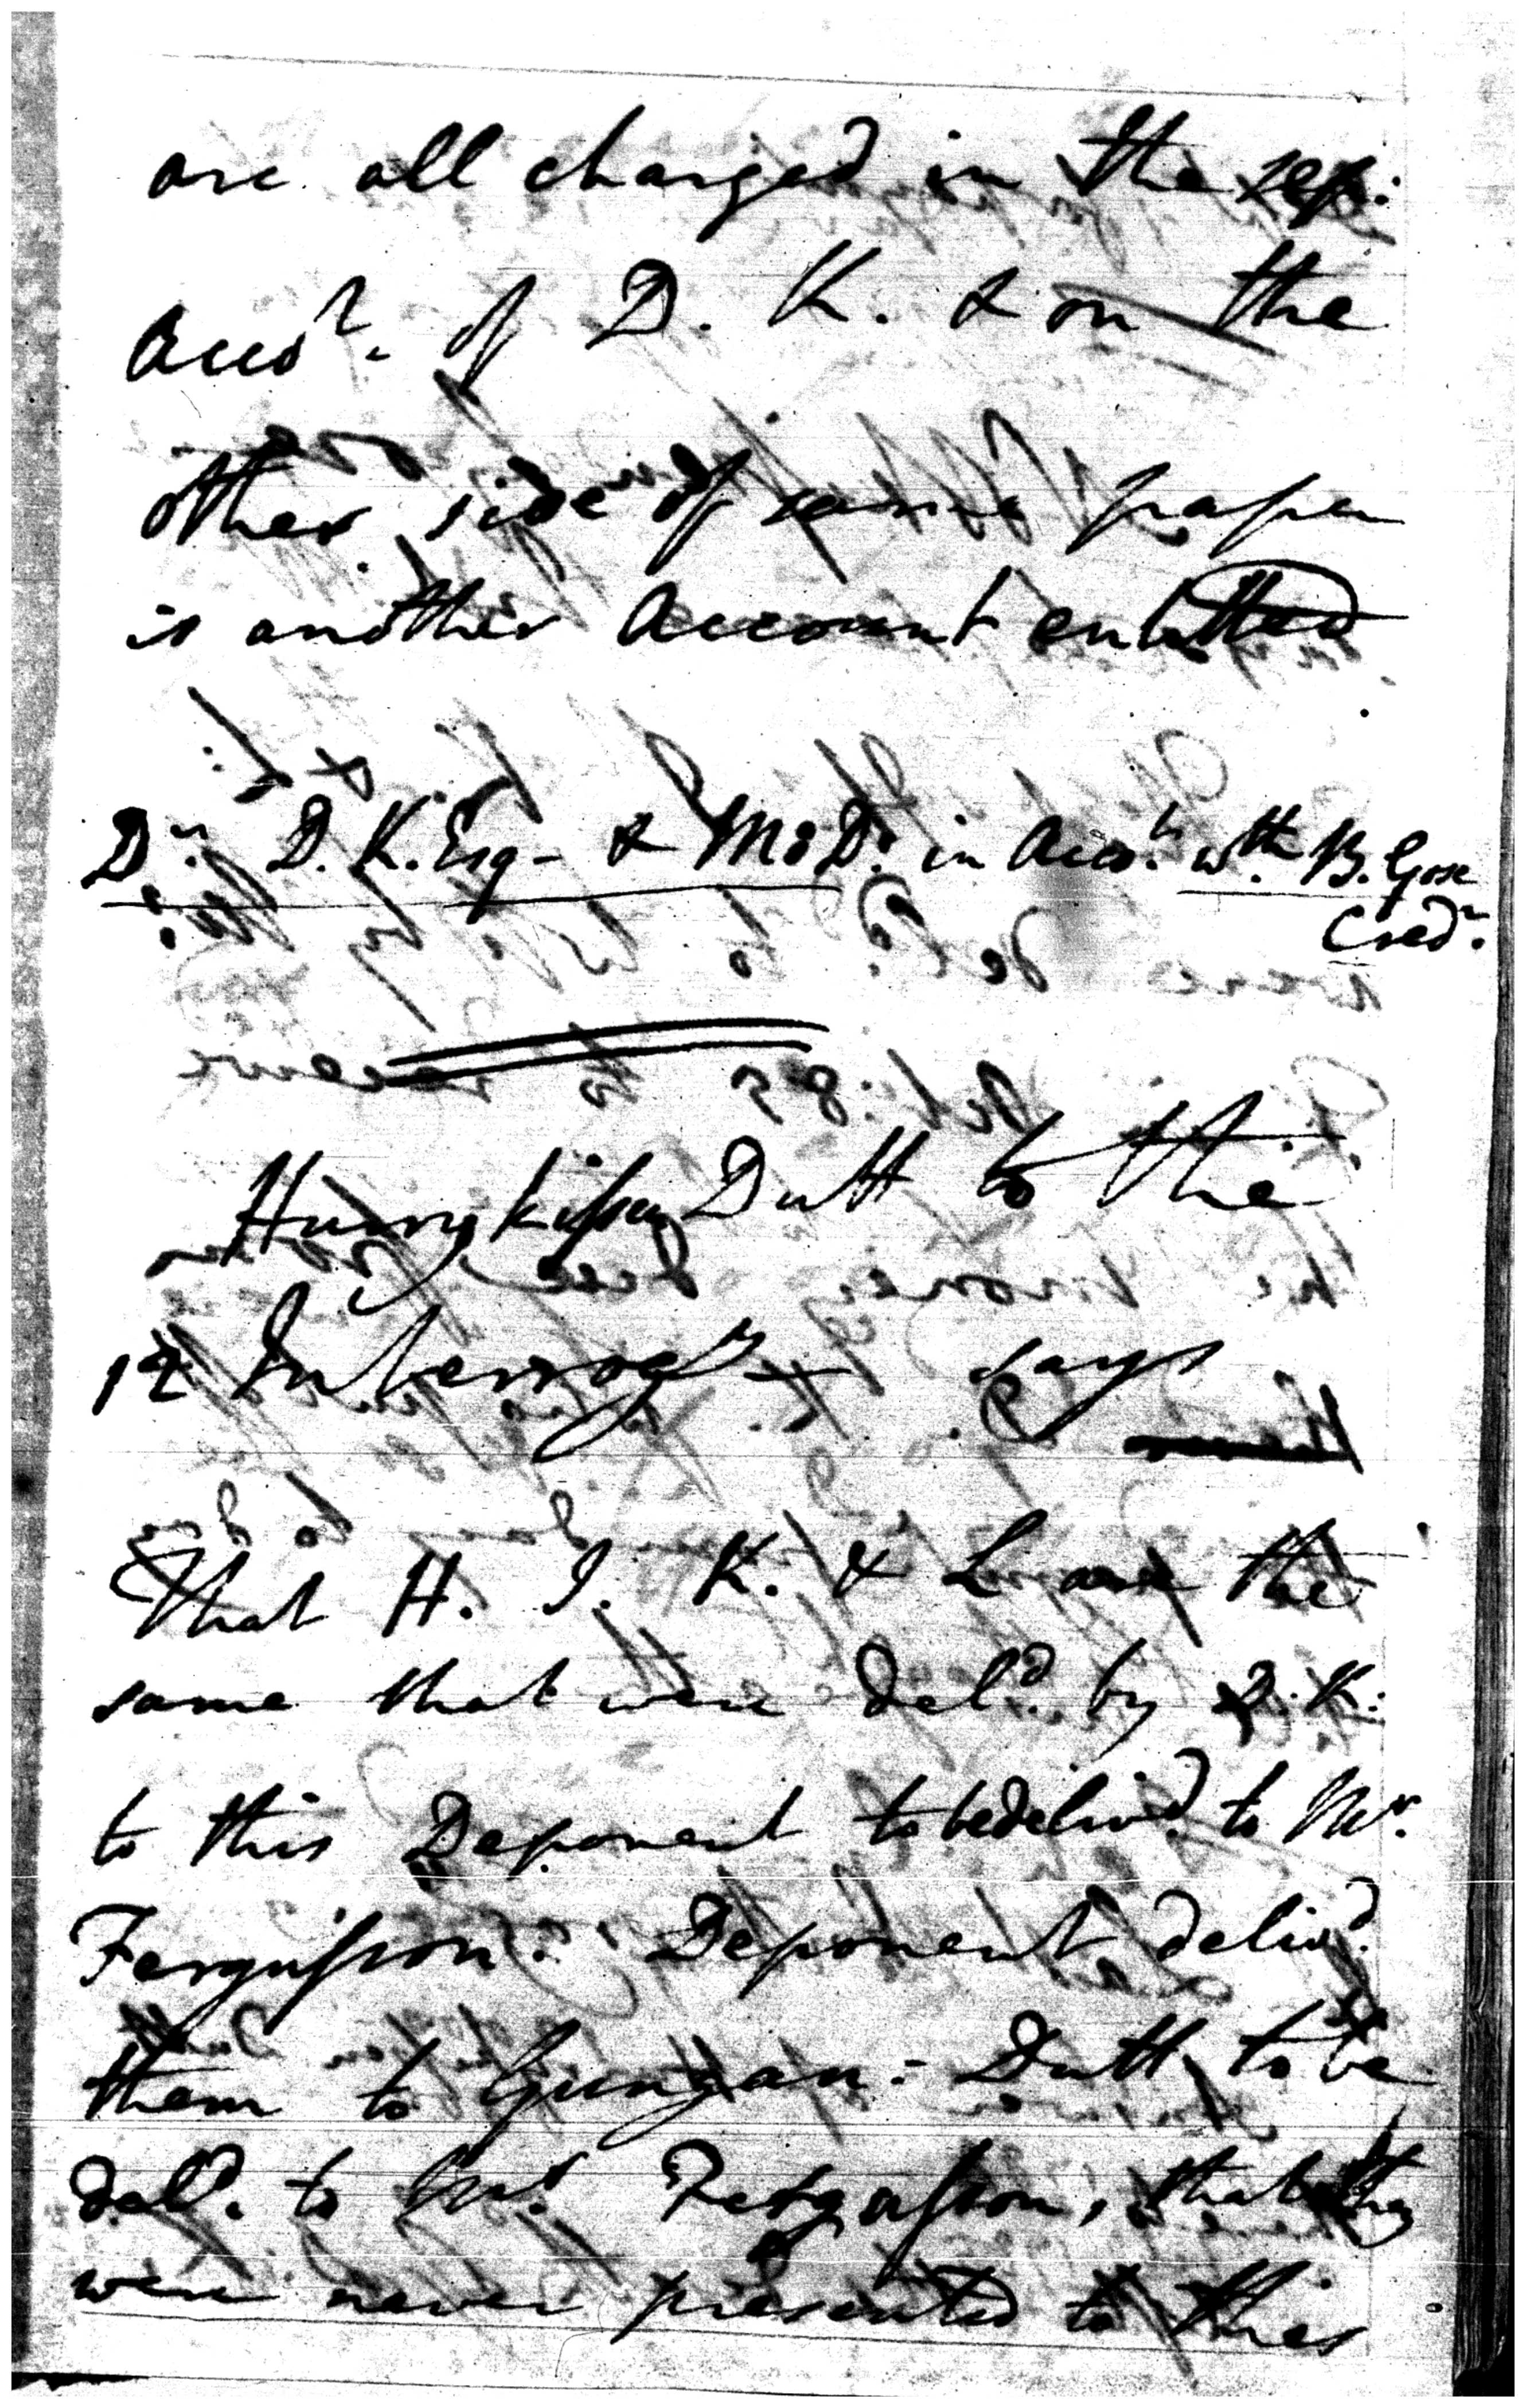 are all charged in the sep:
Acco.t of D. K. & on the
other side of same paper
is another Account entitled
Dr. D. K. Esq- & Mo Do. in Acco.t wth. B. Gose
Cred.r
Hurry Kissen Dutt to the
12 Interrogy says
That H. I. K. & L are the
same that were deld. by D. K:
to this Deponent to be delivd. to Mr.
Fergusson. Deponent delivd.
them to Gungan: Dutt to be
deld. to Mr. Fergusson, that they
were never presented to this